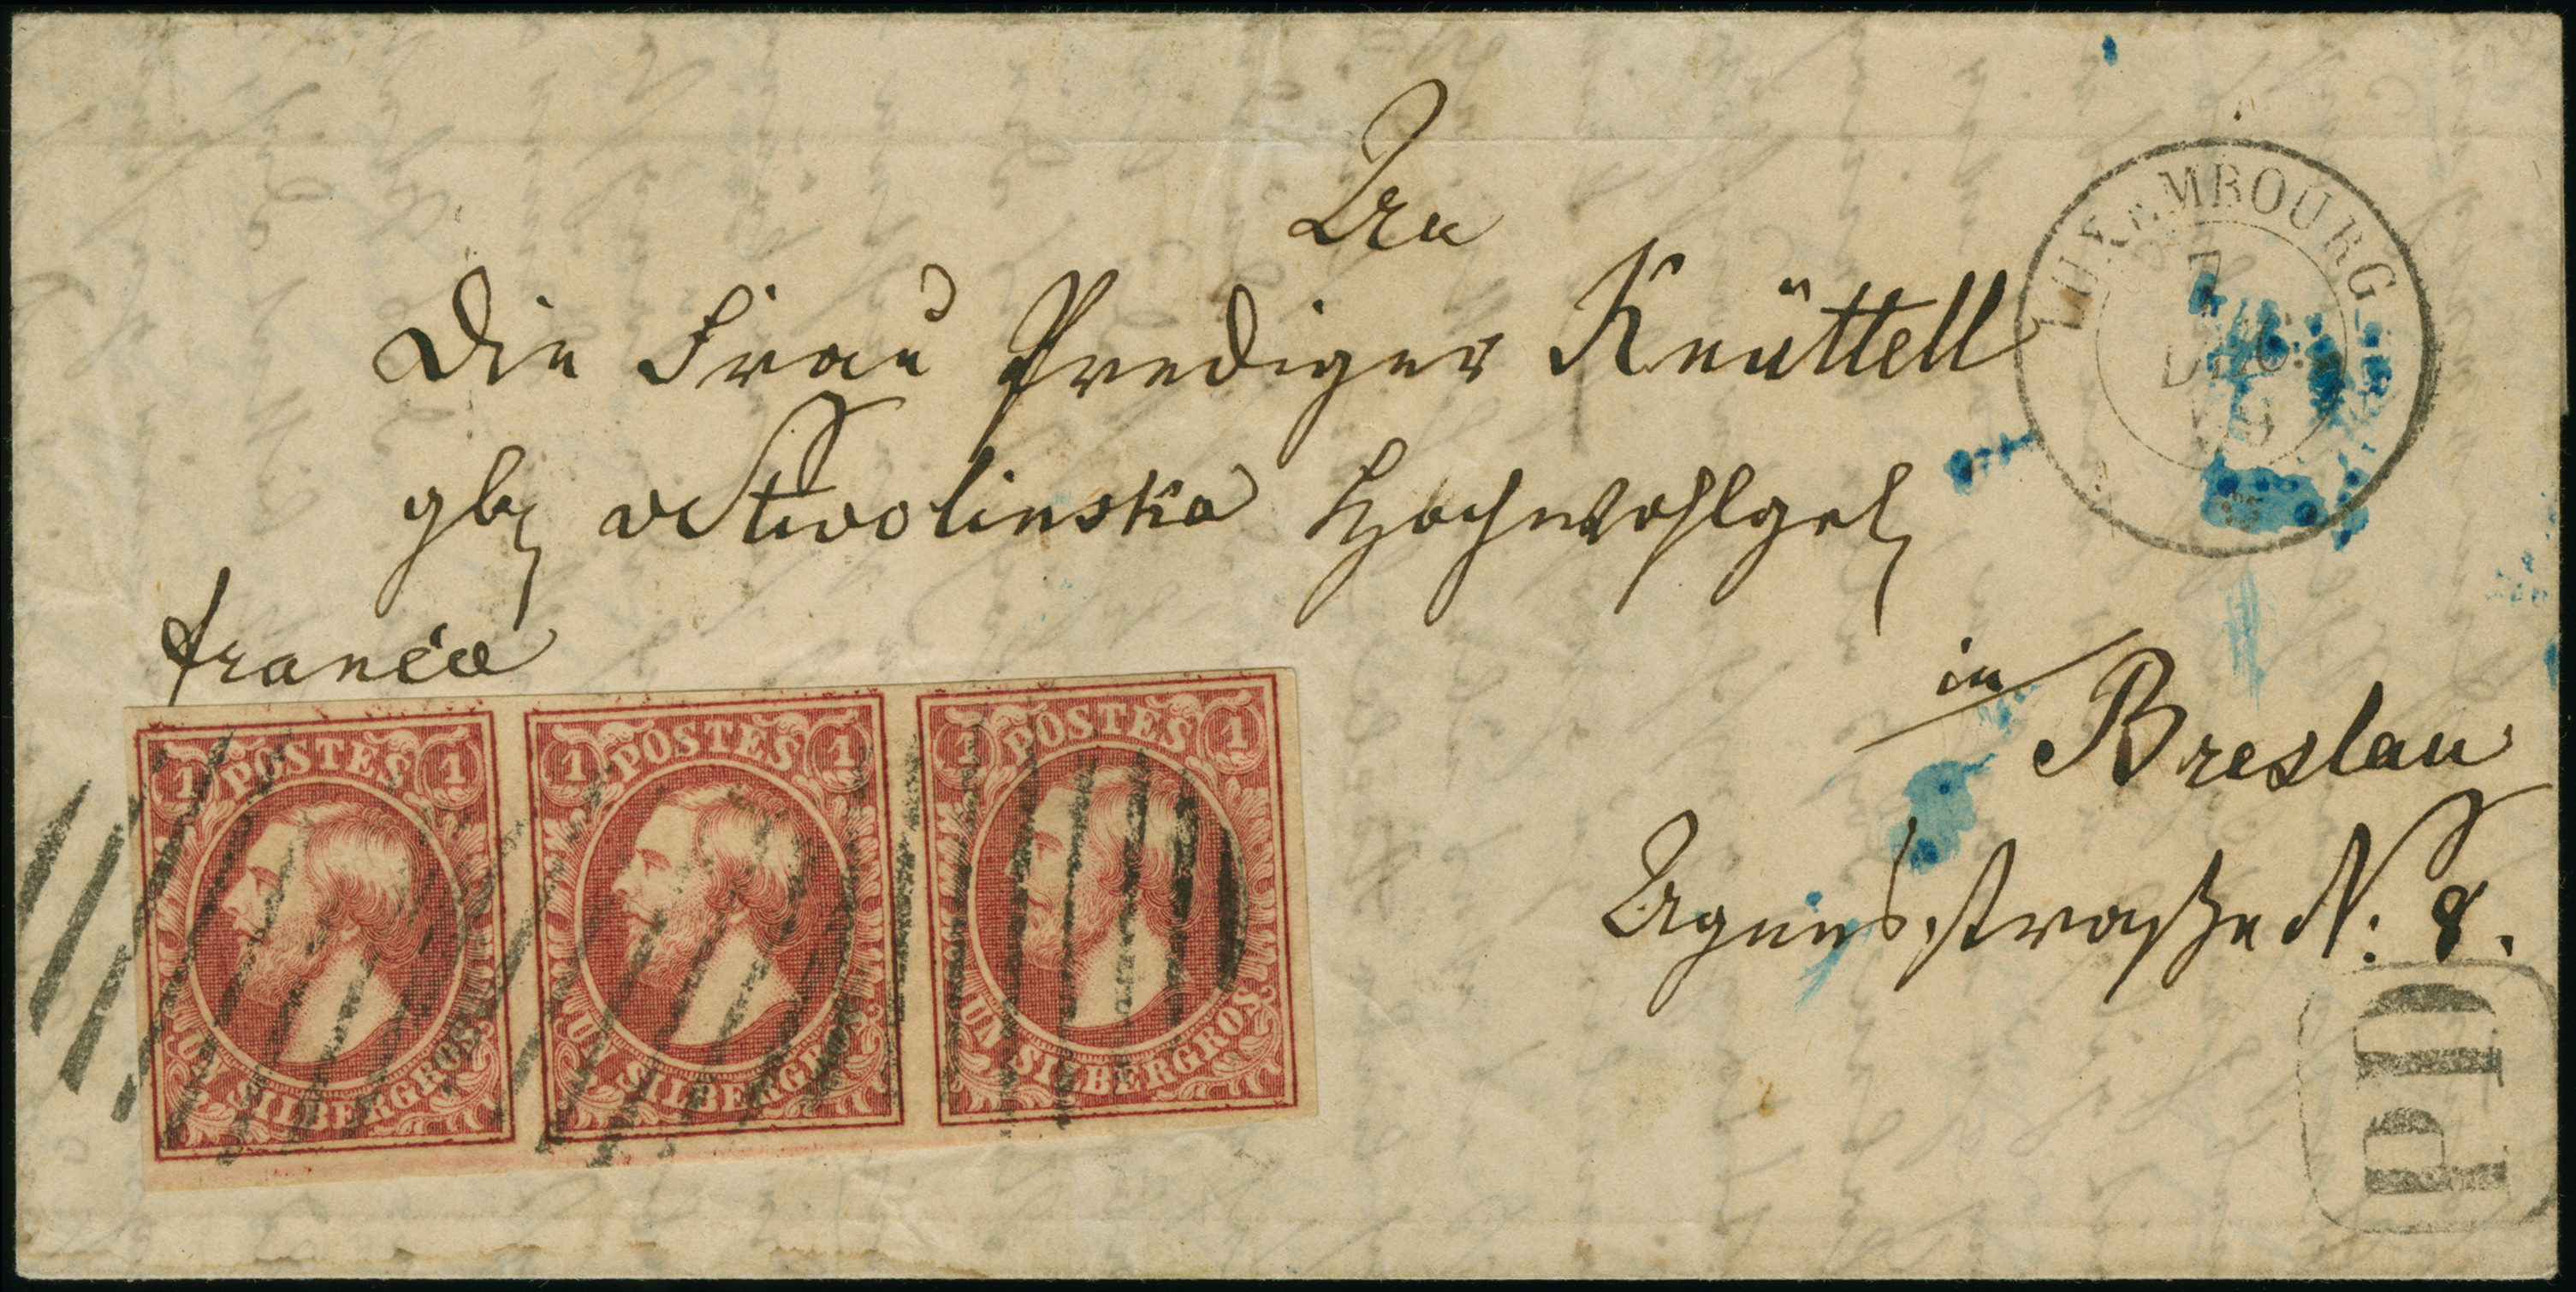 An
die Frau Prediger Knüttell
gb v Stwolinska Hochwohlgeb
franco
in Breslau
Agnesstraße N. 8.
LUXEMBOURG
7
DEC.
59
PD
1 POSTES 1
UN SILBERGROS
1 POSTES 1
UN SILBERGROS
1 POSTES 1
UN SILBERGROS